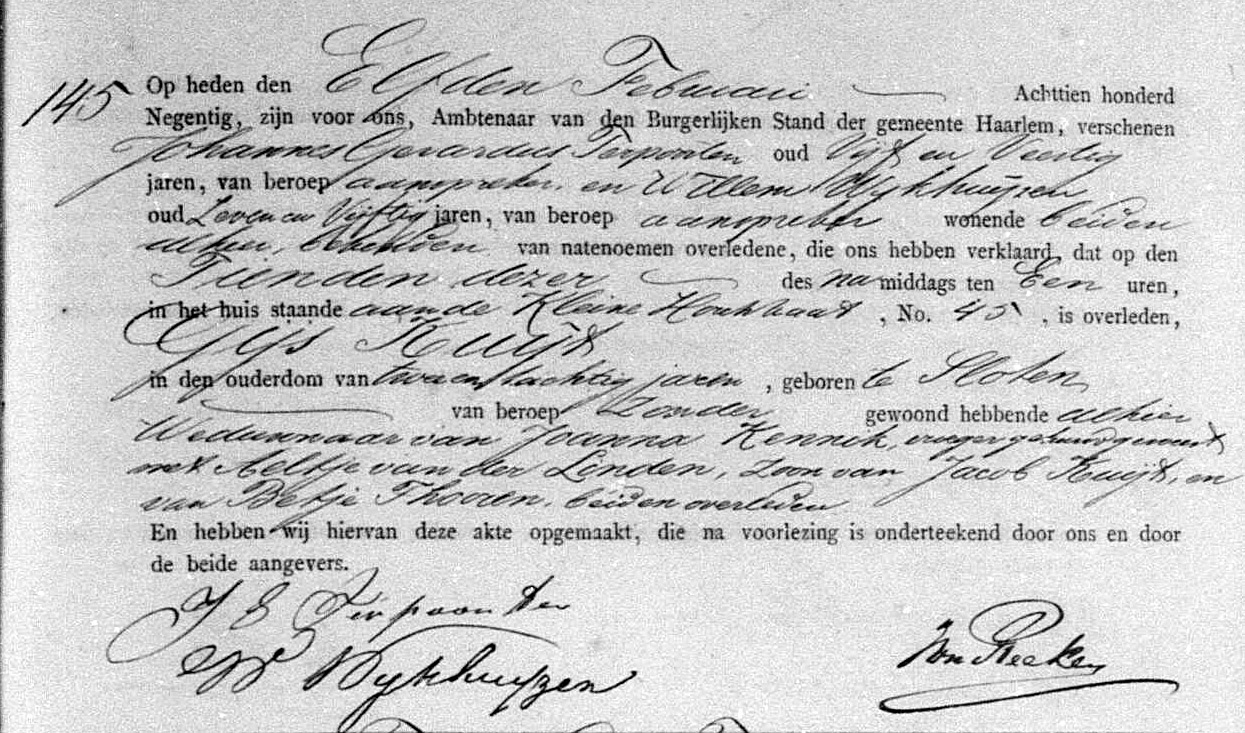 145 Op heden den Elfden Februari Achttien honderd
Negentig, zijn voor ons, Ambtenaar van den Burgerlijken Stand der gemeente Haarlem, verschenen
Johannes Gerardus Terpoorten oud Vijf en Veertig
jaren, van beroep aanspreker, en Willem Wykhuijzen
oud Zeven en Vijftig jaren, van beroep aanspreker wonende beiden
alhier, bekenden van natenoemen overledene, die ons hebben verklaard, dat op den
Tienden dezer des namiddags ten Een uren,
in het huis staande aan de Kleine Houtstraat, No. 45, is overleden,
Gijs Kuijt
in den ouderdom van twee en tachtig jaren, geboren te Sloten
van beroep Zonder gewoond hebbende alhier
Weduwnaar van Joanna Kennik, vroeger gehuwd geweest
met Aeltje van der Linden, Zoon van Jacob Kuijt, en
van Betje Thooren, beiden overleden
En hebben wij hiervan deze akte opgemaakt, die na voorlezing is onderteekend door ons en door
de beide aangevers.
J G Terpoorten
W Wykhuyzen